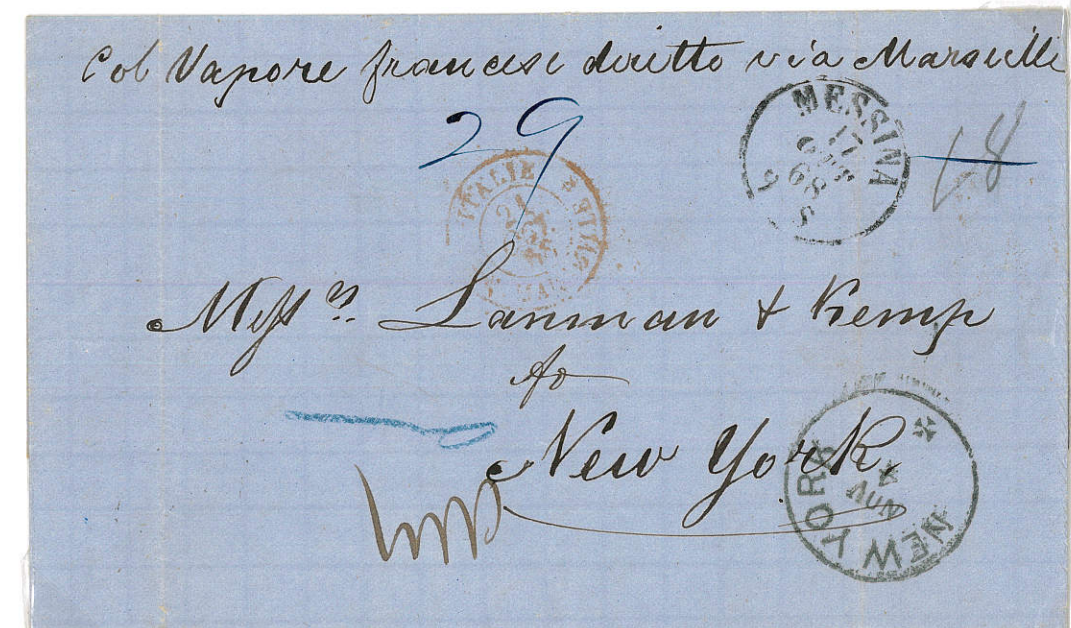 Col Vapore francese diritto via Marseille
29
MESSINA
17
68
S
18
ITALIE
21
Mess.rs Lanman & Kemp
New York.
NEW YORK
JUN